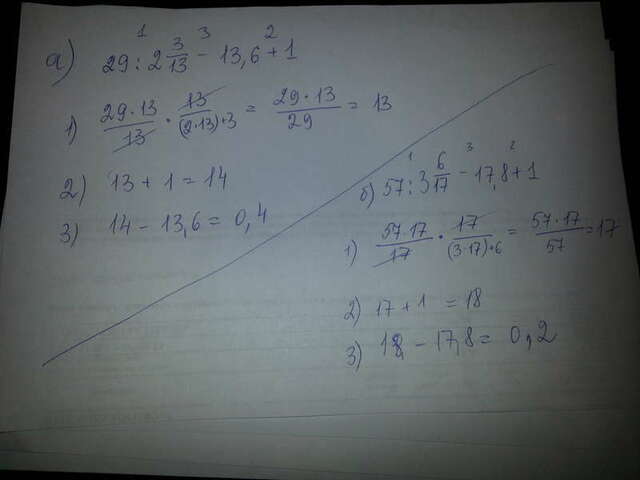 а) 29 : 2 3/13 - 13,6 + 1
1 3 2
1) 29·13/13 · 13/(2·13)+3 = 29·13/29 = 13
2) 13 + 1 = 14
3) 14 - 13,6 = 0,4
б) 57 : 3 6/17 - 17,8 + 1
1 3 2
1) 57·17/17 · 17/(3·17)+6 = 57·17/57 = 17
2) 17 + 1 = 18
3) 18 - 17,8 = 0,2